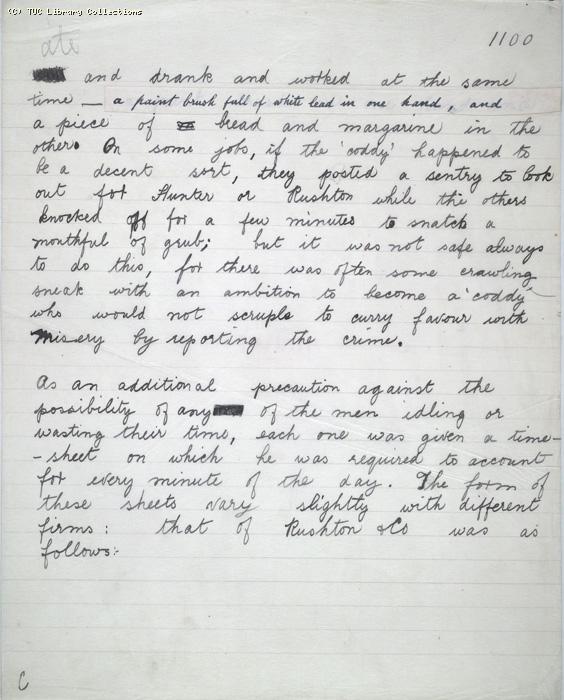 (C) TUC Library Collections
ate
1100
and drank and worked at the same
time — a paint brush full of white lead in one hand, and
a piece of bread and margarine in the
other. On some jobs, if the 'coddy' happened to
be a decent sort, they posted a sentry to look
out for Hunter or Rushton while the others
knocked off for a few minutes to snatch a
mouthful of grub; but it was not safe always
to do this, for there was often some crawling
sneak with an ambition to become a 'coddy'
who would not scruple to curry favour with
Misery by reporting the crime.
As an additional precaution against the
possibility of any of the men idling or
wasting their time, each one was given a time-
-sheet on which he was required to account
for every minute of the day. The form of
these sheets vary slightly with different
firms: that of Rushton & Co was as
follows:-
C